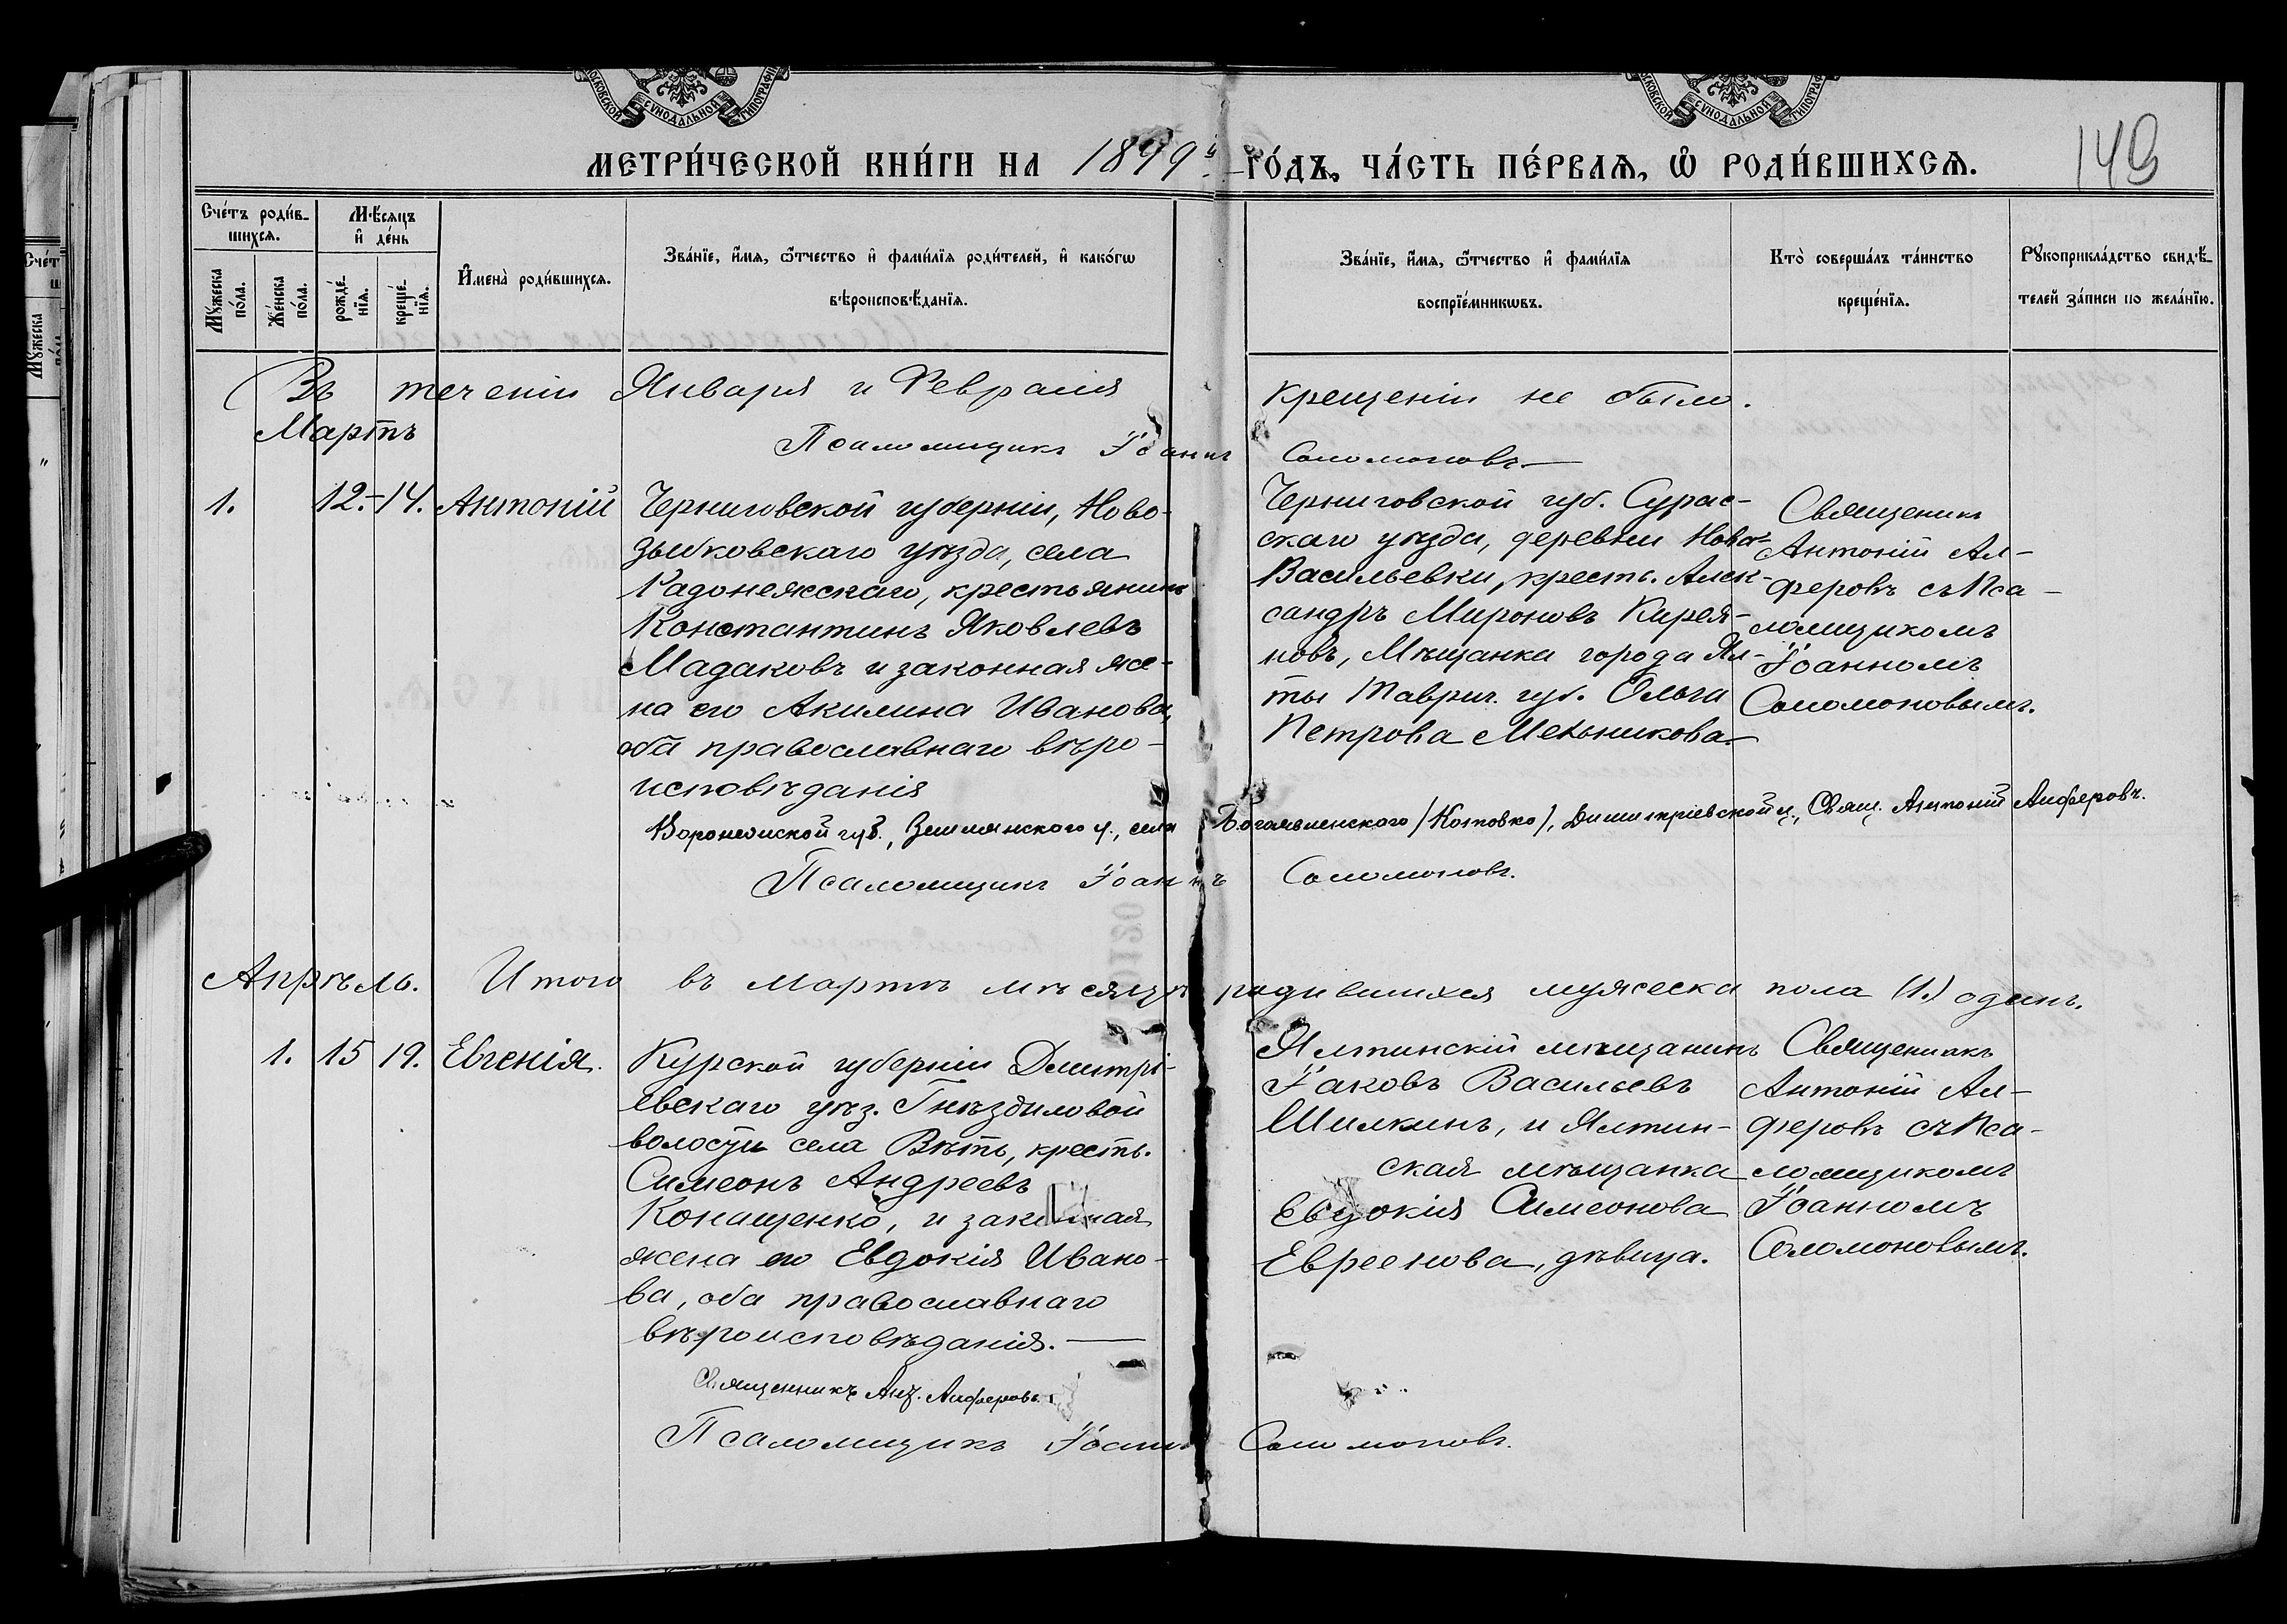 МОСКОВСКОЙ СѴНОДАЛЬНОЙ ТИПОГРАФІ
МОСКОВСКОЙ СѴНОДАЛЬНОЙ ТИПОГРАФІ
МЕТРИ́ЧЕСКОЙ КНИ́ГИ НА 1899й ГО́ДЪ, ЧА́СТЬ ПЕ́РВАѦ, Ѡ҆ РОДИ́ВШИХСѦ.
149
Сче́тъ роди́в-
шихсѧ.
Мꙋ́жеска
по́ла.
Же́нска
по́ла.
Мѣ́сѧцъ
и҆ де́нь
рожде́-
нїѧ.
креще́-
нїѧ.
И҆мена̀ роди́вшихсѧ.
Зва́нїе, и҆́мѧ, ѻ҆́тчество и҆ фами́лїѧ роди́телей, и҆ како́гѡ
вѣроисповѣ́данїѧ.
Зва́нїе, и҆́мѧ, ѻ҆́тчество и҆ фами́лїѧ
воспрїе́мникѡвъ.
Кто̀ соверша́лъ та́инство
креще́нїѧ.
Рꙋкоприкла́дство свидѣ́-
телей за́писи по жела́нїю.
Въ теченіи Января и Февраля крещеніи не было.
Мартъ
Псаломщикъ Іоаннъ Соломоновъ
1. 12.-14. Антоній
Черниговской губерніи, Ново-
зыбковскаго уѣзда, села
Радонежскаго, крестьянинъ
Константинъ Яковлевъ
Мадаковъ и законная же-
на его Акилина Иванова,
оба православнаго вѣро-
исповѣданія
Черниговской губ. Сурас-
скаго уѣзда, деревни Ново-
Васильевки, кресть. Алек-
сандръ Мироновъ Кирея-
новъ, Мѣщанка города Ял-
ты Таврич. губ. Ольга
Петрова Мельникова
Священникъ
Антоній Ал-
феровъ съ Пса-
ломщикомъ
Іоанномъ
Соломоновымъ.
Воронежской губ., Землянского у., села Богоявленского (Котовко), Димитріевской ц., Свящ. Антоній Алферовъ.
Псаломщикъ Іоаннъ Соломоновъ.
Апрѣль. Итого въ Мартѣ мѣсяцѣ родившихся мужеска пола (1.) одинъ.
1. 15 19. Евгенія.
Курской губерніи Дмитрі-
евскаго уѣз. Гнѣздиловой
волости села Вѣть, кресть.
Симеонъ Андреевъ
Конащенко, и законная
жена его Евдокія Ивано-
ва, оба православнаго
вѣроисповѣданія.
Ялтинскій мѣщанинъ
Іаковъ Васильевъ
Шилкинъ, и Ялтин-
ская мѣщанка
Евдокія Симеонова
Евреенова, дѣвица.
Священникъ
Антоній Ал-
феровъ съ Пса-
ломщикомъ
Іоанномъ
Соломоновымъ.
Священникъ Ант. Алферовъ.
Псаломщикъ Іоаннъ Соломоновъ.